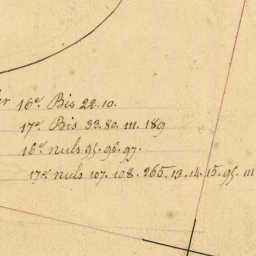 16e Bis 22.10.
17e Bis 33.80.111.189
16e nuls 95.96.97.
17e nuls 107.108.265.13.14.15.95.111